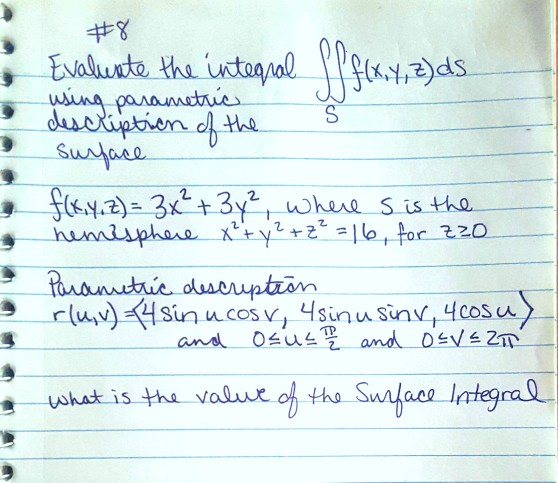 #8
Evaluate the integral ∬f(x,y,z)ds
using parametric S
description of the
surface
f(x,y,z) = 3x² + 3y², where S is the
hemisphere x² + y² + z² = 16, for z≥0
Parametric description
r(u,v) = ⟨4 sin u cos v, 4 sin u sin v, 4 cos u⟩
and 0≤u≤π/2 and 0≤v≤2π
what is the value of the Surface Integral